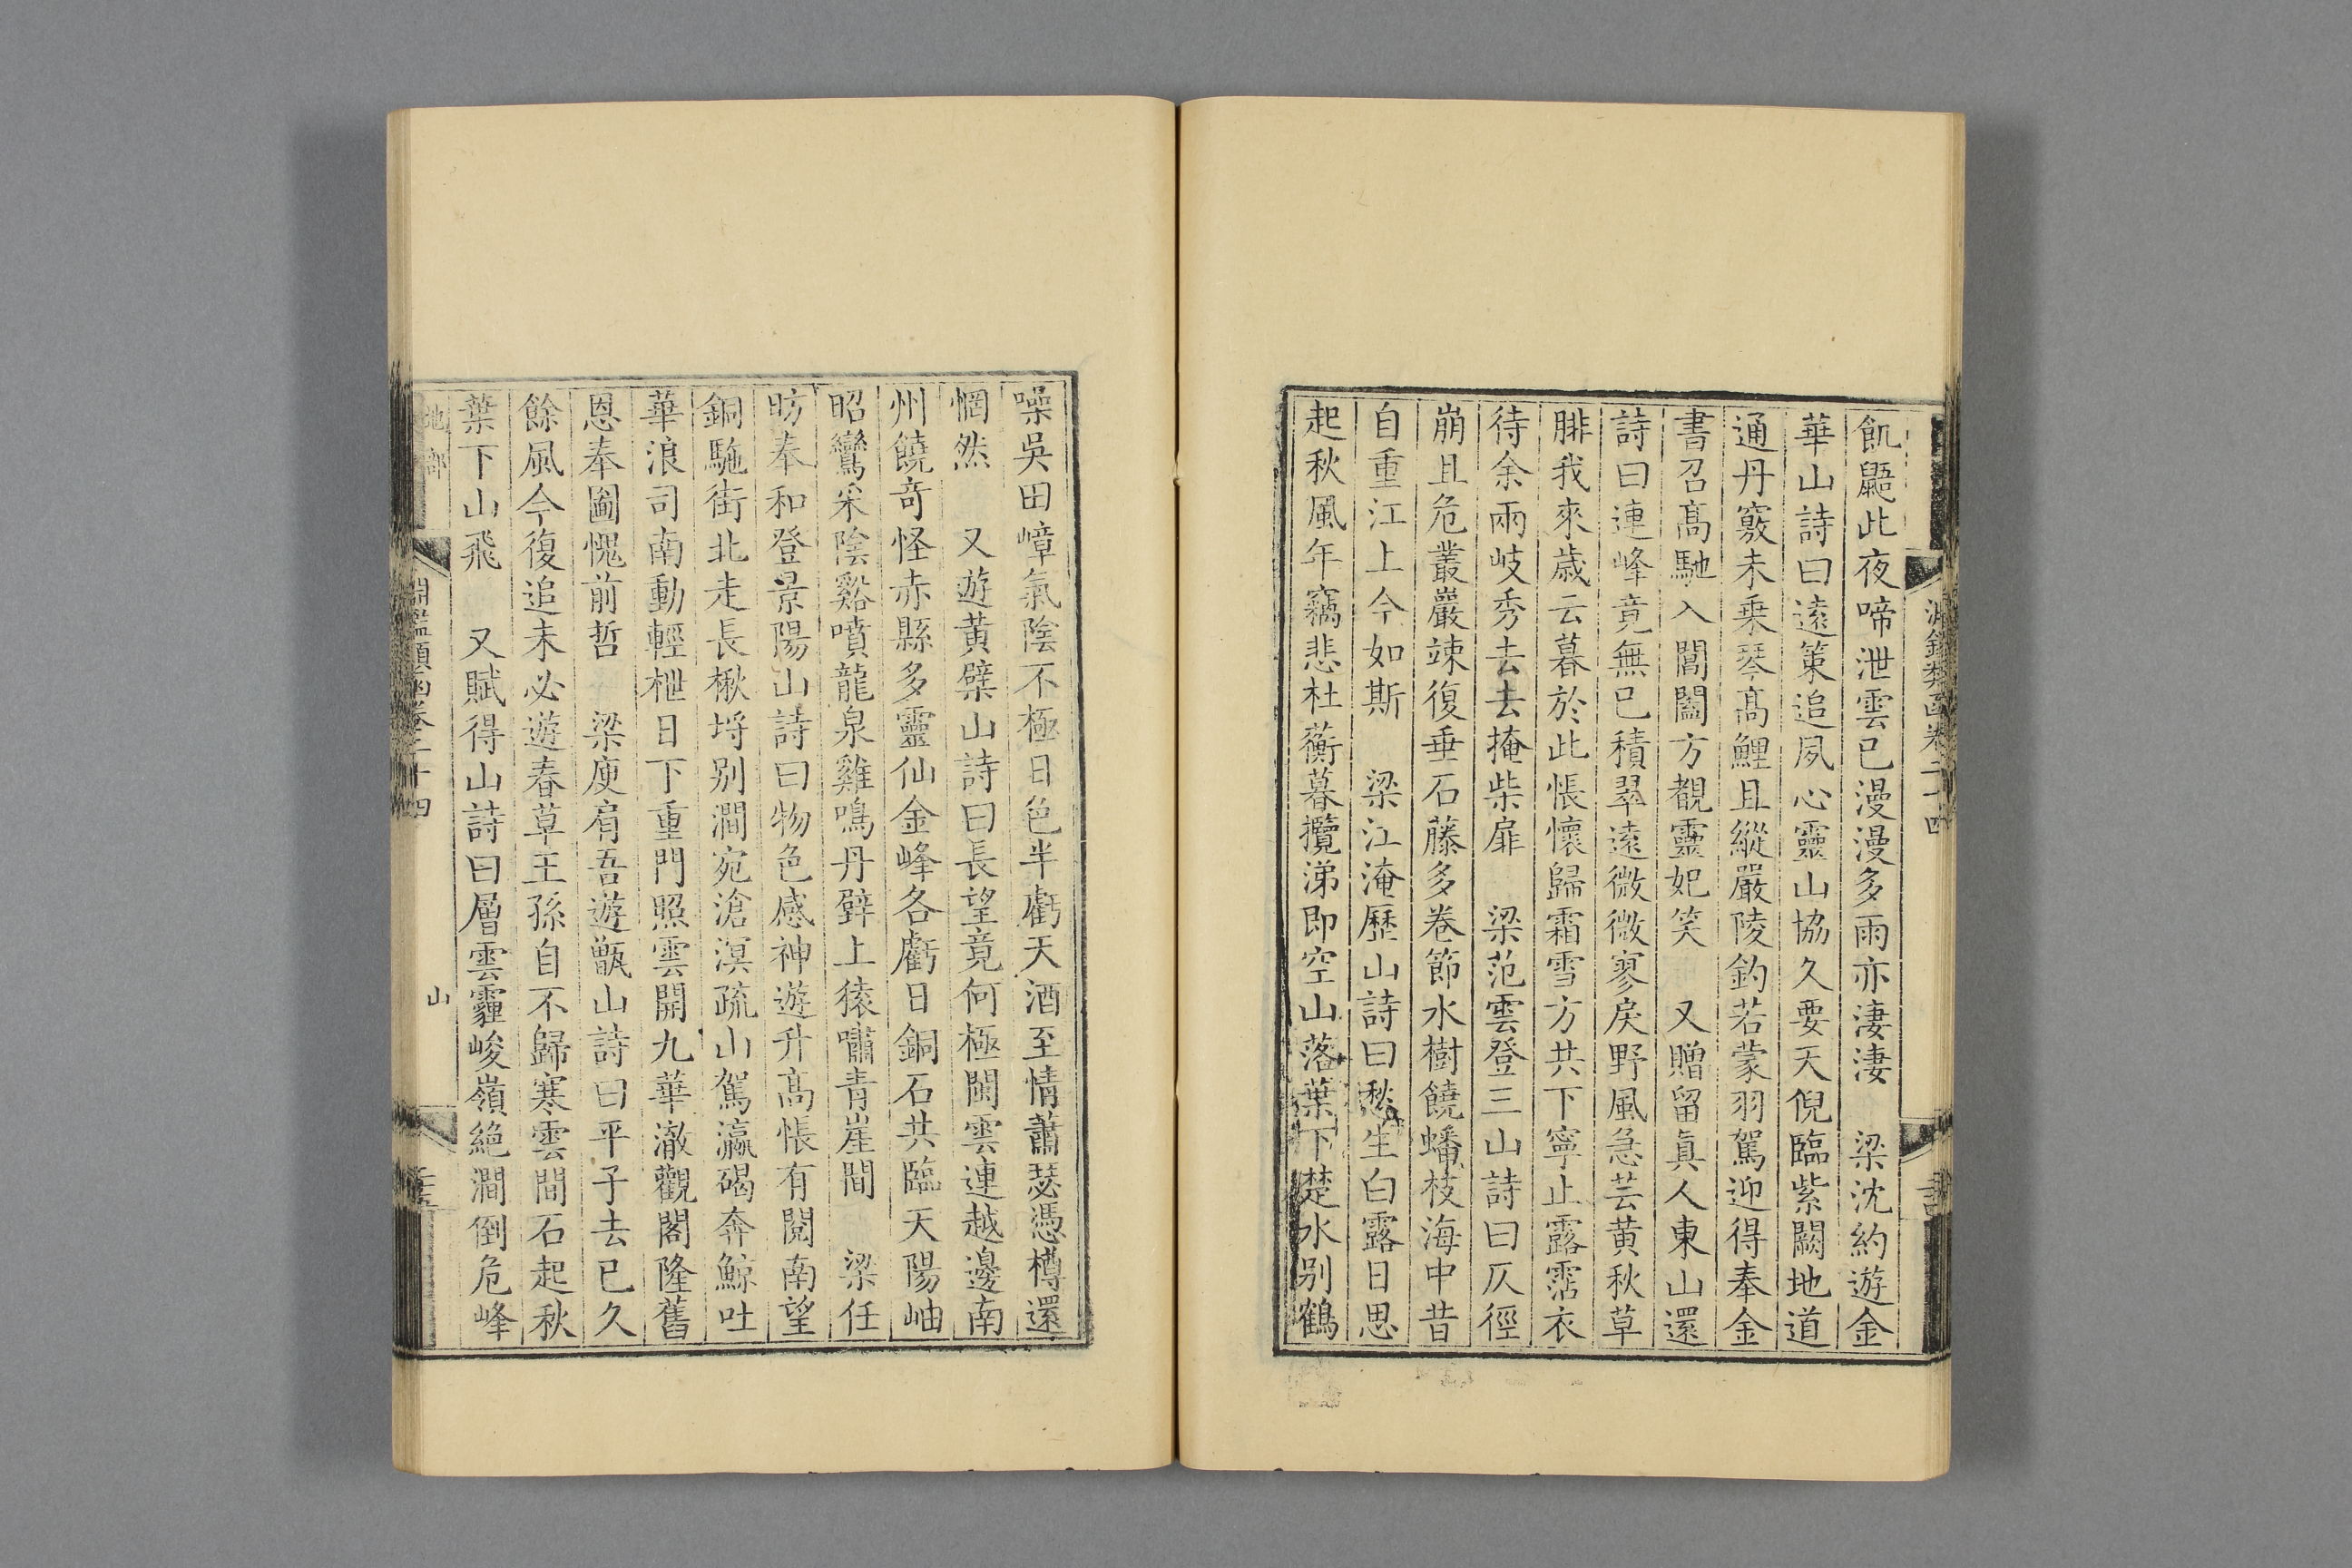 飢鼯此夜啼泄雲已漫漫多雨亦淒淒　梁沈約遊金
華山詩曰遠策追夙心靈山協久要天倪臨紫闕地道
通丹竅未乗琴髙鯉且縱嚴陵釣若蒙羽駕迎得奉金
書召髙馳入閶闔方覩靈妃笑　又贈留眞人東山還
詩曰連峰竟無已積翠遠微微寥戾野風急芸黄秋草
腓我來歲云暮於此悵懷歸霜雪方共下寧止露霑衣
待余兩岐秀去去掩柴扉　梁范雲登三山詩曰仄徑
崩且危叢巖竦復垂石藤多卷節水樹饒蟠枝海中昔
自重江上今如斯　梁江淹歷山詩曰愁生白露日思
起秋風年竊悲杜蘅暮攬涕即空山落葉下楚水别鶴
噪吳田嶂氣陰不極日色半虧天酒至情蕭瑟憑樽還
惘然　又遊黄檗山詩曰長望竟何極閩雲連越邊南
州饒竒怪赤縣多靈仙金峰各虧日銅石共臨天陽岫
昭鸞采陰谿噴龍泉雞鳴丹壁上猿嘯青崖間　梁任
昉奉和登景陽山詩曰物色感神遊升髙悵有閲南望
銅駞街北走長楸埒别澗宛滄溟疏山駕瀛碣奔鯨吐
華浪司南動輕枻日下重門照雲開九華澈觀閣隆舊
恩奉圖愧前哲　梁庾肩吾遊甑山詩曰平子去已久
餘風今復追未必遊春草王孫自不歸寒雲間石起秋
葉下山飛　又賦得山詩曰層雲霾峻嶺絶澗倒危峰
地部　淵鑑類函卷二十四　山